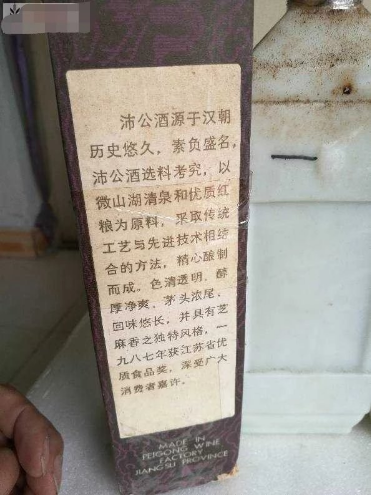 沛公酒源于汉朝
历史悠久，素负盛名，
沛公酒选料考究，以
微山湖清泉和优质红
粮为原料，采取传统
工艺与先进技术相结
合的方法，精心酿制
而成。色清透明，醇
厚净爽，茅头浓尾，
回味悠长，并具有芝
麻香之独特风格，一
九八七年获江苏省优
质食品奖，深受广大
消费者嘉许。
MADE IN
PEIGONG WINE
FACTORY
JIANGSU PROVINCE